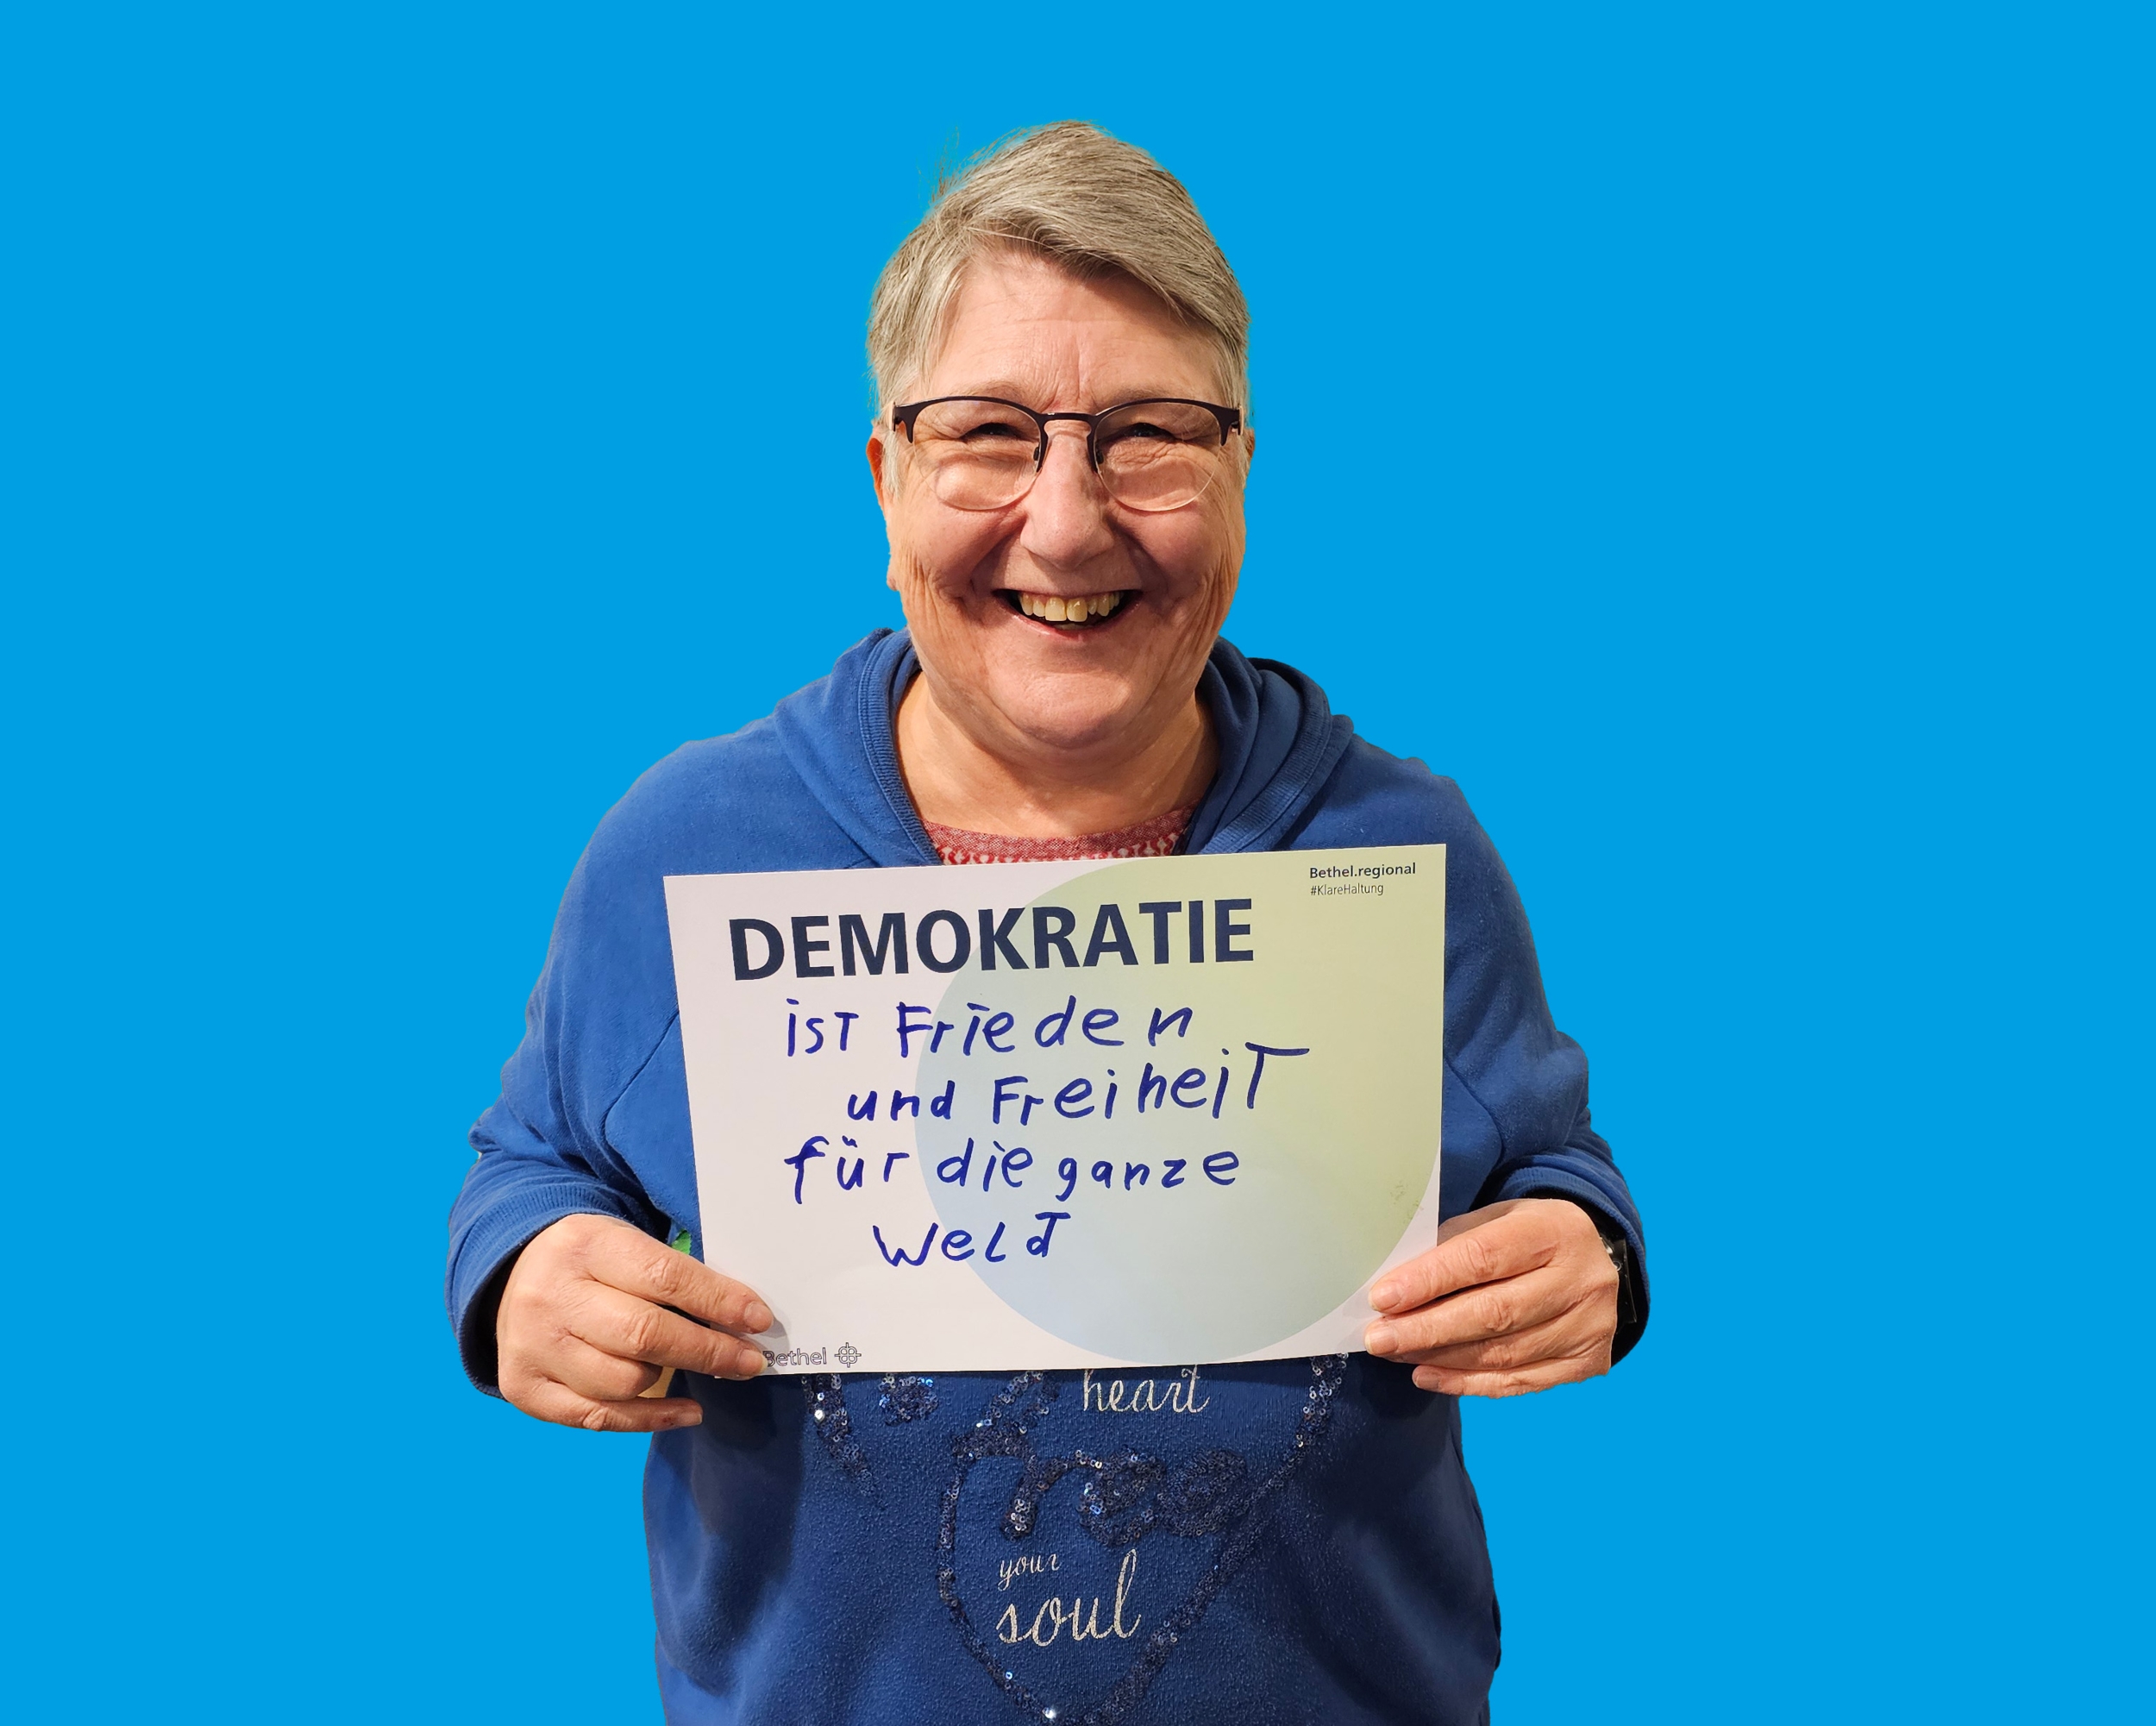 Bethel.regional
#KlareHaltung
DEMOKRATIE
isT Frieden
und FreiheiT
für die ganze
WeLdT
Bethel
heart
free
your
soul